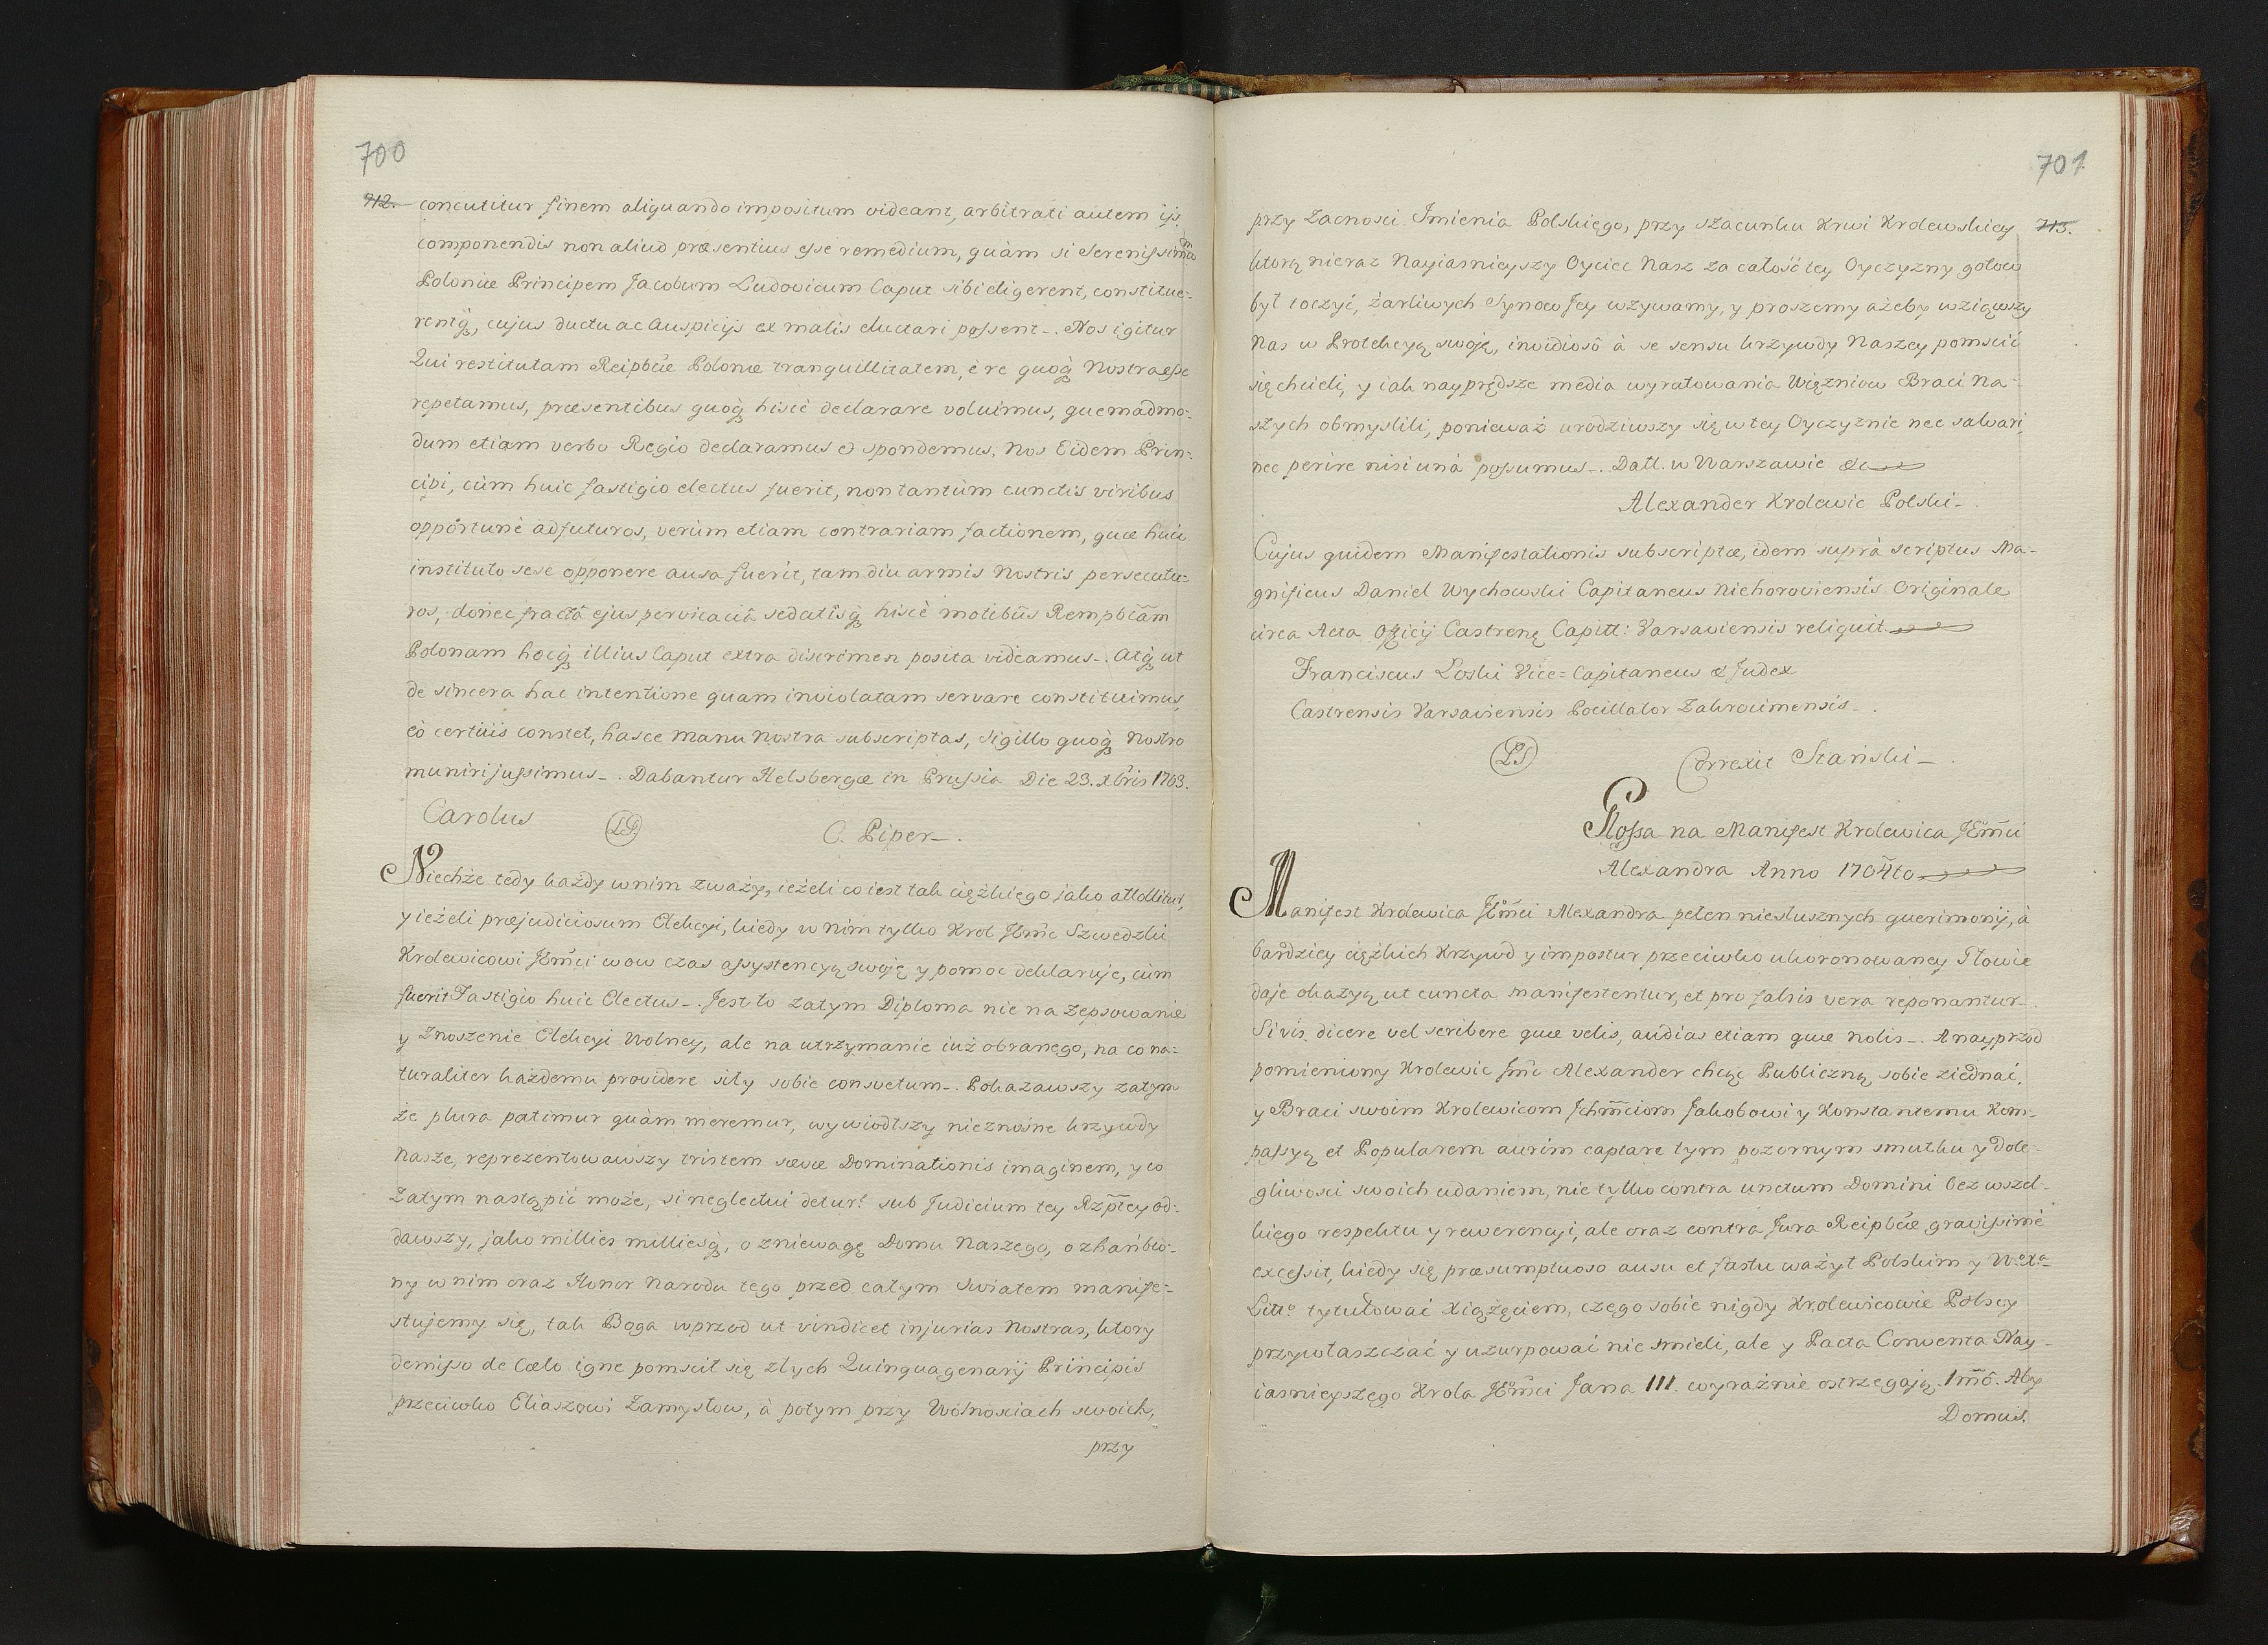 700
712. concutitur finem aliquando impositum videant, arbitrati autem ijs
componendis non aliud præsentius esse remedium, quàm si Serenissimũ
Poloniæ Principem Jacobum Ludovicum Caput sibi eligerent, constitue=
rentq́, cujus ductu ac Auspicijs ex malis eluctari possent-. Nos igitur
Qui restitutam Reipbcæ Polonæ tranquillitatem, è re quoq́ Nostra esse
repetamus, præsentibus quoq́ hiscè declarare voluimus, quemadmo=
dum etiam verbo Regio declaramus et spondemus, Nos Eidem Prin=
cipi, cùm huic fastigio electus fuerit, non tantùm cunctis viribus
opportunè adfuturos, verùm etiam contrariam factionem, quæ huic
instituto sese opponere ausa fuerit, tam diu armis Nostris persecutu=
ros, donec fractâ ejus pervicaciâ sedatisq́ hiscè motibus Rempbcãm
Polonam hocq́ illius Caput extra discrimen posita videamus-. Atq́ ut
de sincera hac intentione quam inviolatam servare constituimus,
eò certiùs constet, hasce manu Nostra subscriptas, sigillo quoq́ Nostro
muniri jussimus-. Dabantur Helsbergæ in Prussia Die 23. xbris 1703.
Carolus LS. C. Piper-.
Niechże tedy każdy w nim zważy, ieżeli co iest tak ciężkiego jako attollitur,
y ieżeli præjudiciosum Elekcyi, kiedy w nim tylko Krol JEm̃c Szwedzki
Krolewicowi JEm̃ci wow czas assystencyą swoję y pomoc deklaruje, cùm
fuerit Fastigio huic Electus-. Jest to zatym Diploma nie na zepsowanie
y znoszenie Elekcyi Wolney, ale na utrzymanie iuż obranego, na co na=
turaliter każdemu providere siły sobie consvetum-. Pokazawszy zatym
że plura patimur quàm meremur, wywiodłszy nieznośne krzywdy
Nasze, reprezentowawszy tristem sævæ Dominationis imaginem, y co
zatym nastąpić może, si neglectui detur: sub Judicium tey Rzptey od=
dawszy, jako millies milliesq́, o zniewagę Domu Naszego, o zhańbio=
ny w nim oraz Honor Narodu tego przed całym światem manife=
stujemy się, tak Boga wprzod ut vindicet injurias Nostras, ktory
demisso de Cælo igne pomścił się złych Quinquagenarij Principis
przeciwko Eliaszowi Zamysłow, à potym przy Wolnościach swoich,
przy
701
przy Zacnosci Imienia Polskiego, przy szacunku Krwi Krolewskiey 713.
ktorą nieraz Nayiasnieyszy Oyciec Nasz za całość tey Oyczyzny gotow
był toczyć, żarliwych Synow Jey wzywamy, y prosżemy ażeby wziąwszy
Nas w Protekcyą swoję, invidiosô à se sensu krzywdy Naszey pomścić
się chcieli, y iak nayprędsze media wyratowania Więzniow Braci Na=
szych obmyslili, ponieważ urodziwszy się w tey Oyczyznie nec salvari,
nec perire nisi unà possumus-. Datt. w Warszawie &c
Alexander Krolewic Polski-.
Cujus quidem Manifestationis subscriptæ, idem suprà scriptus Ma-
gnificus Daniel Wychowski Capitaneus Niehoroviensis Originale
circa Acta Officij Castren̨ Capitt: Varsaviensis reliquit
Franciscus Loski Vice=Capitaneus & Judex
Castrensis Varsaviensis Pocillator Zakrocimensis-.
LS Correxit Stański-.
Glossa na Manifest Krolewica JEm̃ci
Alexandra Anno 1704to
Manifest Krolewica JEm̃ci Alexandra pełen niesłusznych querimonij, à
bardziey ciężkich Krzywd y impostur przeciwko ukoronowaney Głowie
daje okazyą ut cuncta manifestentur, et pro falsis vera reponantur-.
Si vis dicere vel scribere quæ velis, audias etiam quæ nolis-. A nayprzod
pomieniony Krolewic Jm̃c Alexander chcąc Publiczną sobie ziednać,
y Braci swoim Krolewicom Jchm̃ciom Jakobowi y Konstantemu Kom-
passyą et Popularem aurim captare tym pozornym smutku y dole-
gliwosci swoich udaniem, nie tylko contra unctum Domini bez wszel-
kiego respektu y rewerencyi, ale oraz contra Jura Reipbcæ gravissimè
excessit, kiedy się præsumptuoso ausu et fastu ważył Polskim y W.Xa
Litto tytułować Xiążęciem, czego sobie nigdy Krolewicowie Polscy
przywłaszczać y uzurpować nie smieli, ale y Pacta Conventa Nay-
iasnieyszego Krola JEm̃ci Jana III. wyraźnie ostrzegają. 1mõ. Aby
Domus.